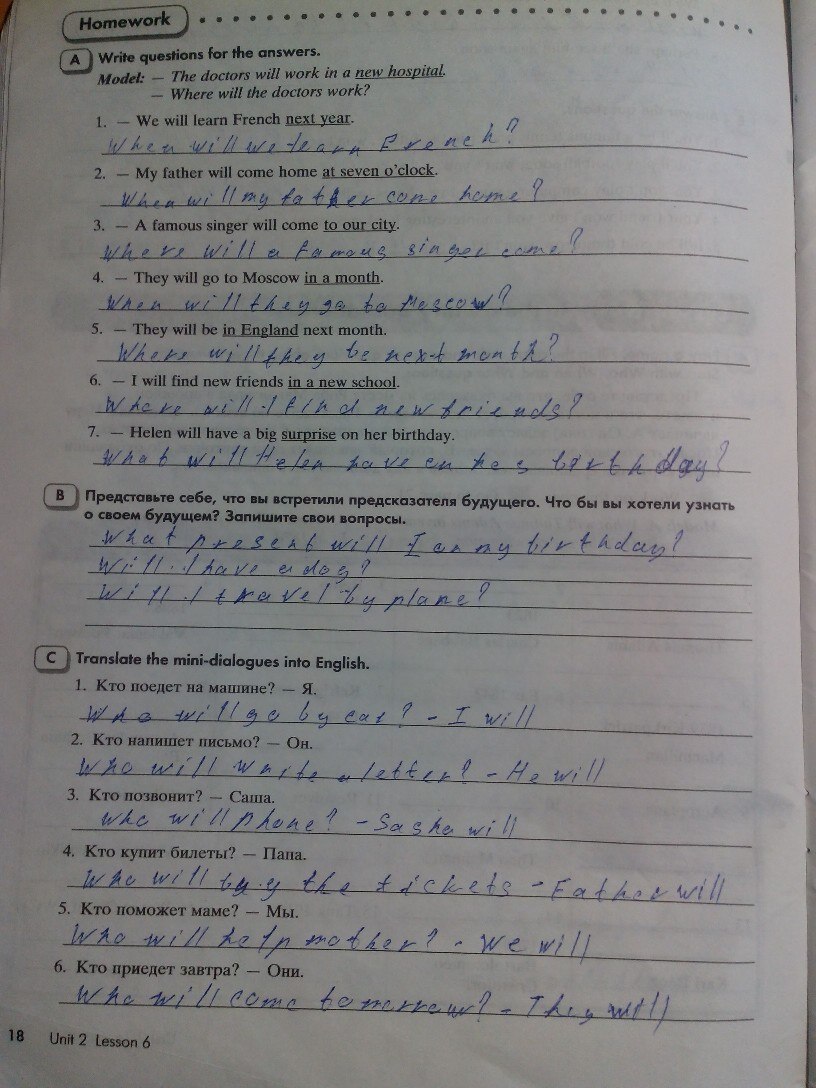 Homework
A Write questions for the answers.
Model: — The doctors will work in a new hospital.
— Where will the doctors work?
1. — We will learn French next year.
When will we learn French?
2. — My father will come home at seven o'clock.
When will my father come home?
3. — A famous singer will come to our city.
Where will a famous singer come?
4. — They will go to Moscow in a month.
When will they go to Moscow?
5. — They will be in England next month.
Where will they be next month?
6. — I will find new friends in a new school.
Where will I find new friends?
7. — Helen will have a big surprise on her birthday.
What will Helen have on her birthday?
B Представьте себе, что вы встретили предсказателя будущего. Что бы вы хотели узнать
о своем будущем? Запишите свои вопросы.
What present will I on my birthday?
Will I have a dog?
Will I travel by plane?
C Translate the mini-dialogues into English.
1. Кто поедет на машине? — Я.
Who will go by car? - I will
2. Кто напишет письмо? — Он.
Who will write a letter? - He will
3. Кто позвонит? — Саша.
Who will phone? - Sasha will
4. Кто купит билеты? — Папа.
Who will buy the tickets - Father will
5. Кто поможет маме? — Мы.
Who will help mother? - We will
6. Кто приедет завтра? — Они.
Who will come tomorrow? - They will
18 Unit 2 Lesson 6